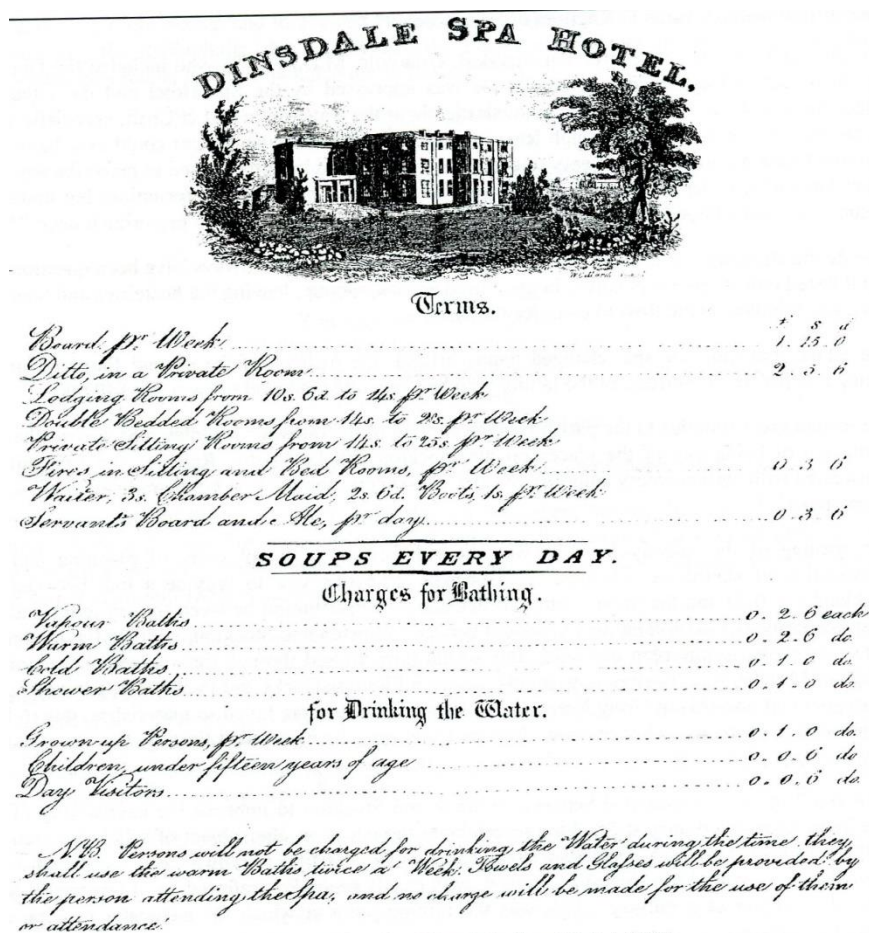 DINSDALE SPA HOTEL.
Terms.
£ s d
Board, pr Week 1. 15. 0
Ditto, in a Private Room 2. 5. 6
Lodging Rooms from 10s. 6d. to 14s. pr Week
Double Bedded Rooms from 14s. to pr Week
Private Sitting Rooms from 14s. to 25s. pr Week
Fires in Sitting and Bed Rooms, pr Week 0. 3. 6
Waiter, 3s. Chamber Maid, 2s. 6d. Boots, 1s. pr Week
Servant's Board and Ale, pr day 0. 3. 6
SOUPS EVERY DAY.
Charges for Bathing.
Vapour Baths 0. 2. 6 each
Warm Baths 0. 2. 6 do.
Cold Baths 0. 1. 0 do.
Shower Baths 0. 1. 0 do.
for Drinking the Water.
Grown up Persons, pr Week 0. 1. 0 do.
Children, under fifteen years of age 0. 0. 6 do
Day Visitors 0. 0. 6 do.
N.B. Persons will not be charged for drinking the Water during the time they
shall use the warm Baths twice a Week. Towels and Glasses will be provided by
the person attending the Spa, and no charge will be made for the use of them
or attendance.